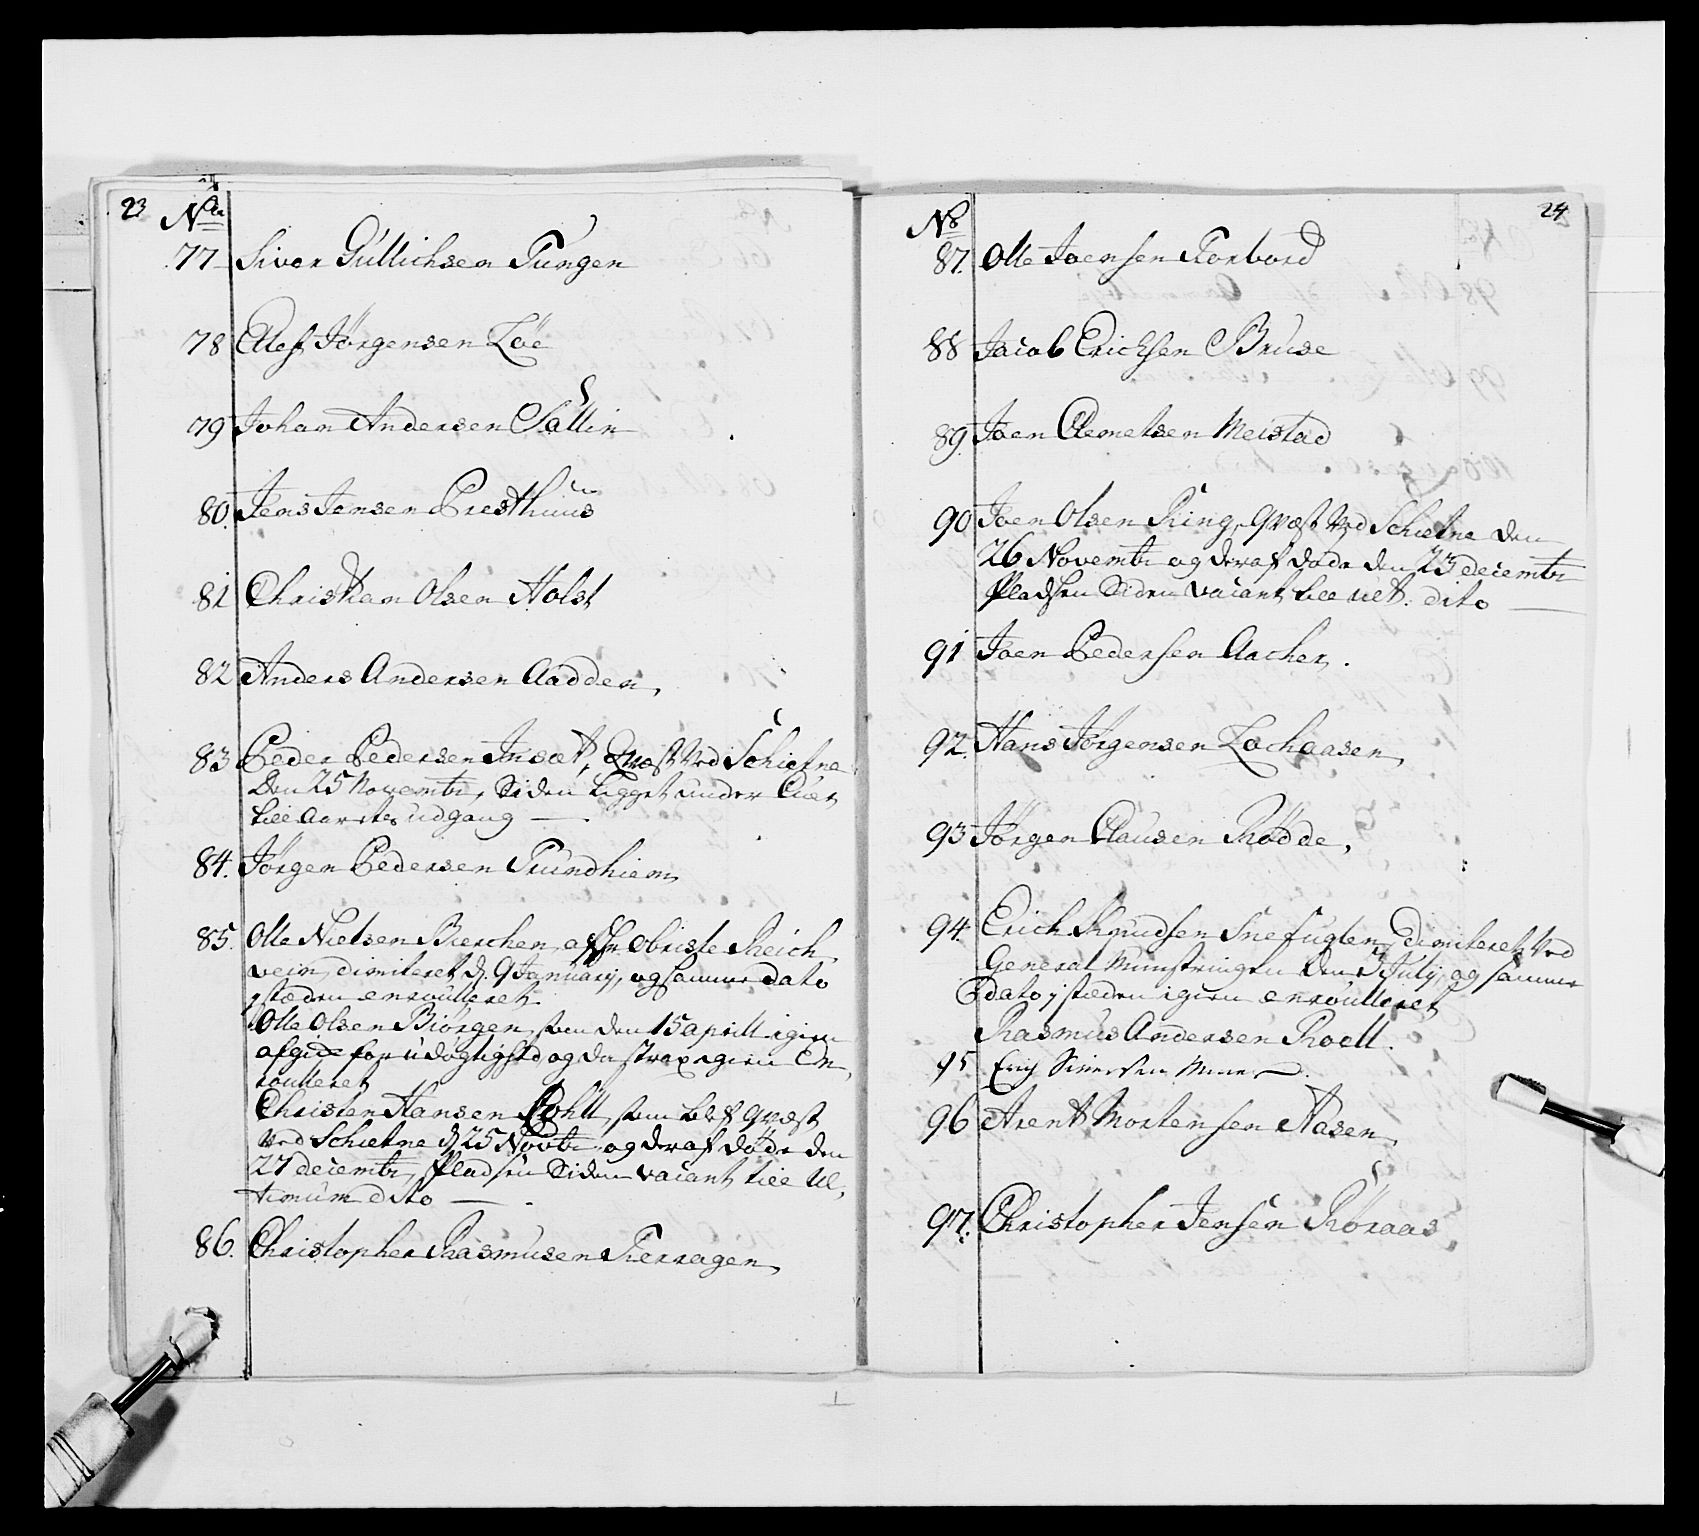 23
No
77 Siver Gullichsen Tungen
78 Olef Jørgensen Løe
79 Johan Andersen Sællin
80. Jens Jensen Presthuus
81 Christian Olsen Holst
82 Anders Andersen Aadden,
83 Peder Pedersen Insæt, Qvæst Ved Schietne
Den 25 Novembr, Siden Ligget under Cuer
till Aarets udgang —
84. Jørgen Pedersen Trundhiem
85. Olle Nielsen Bierchen, af Hr. Obriste Reich,
vein, dimiteret d. 9 January, og samme dato
j stæden enroulleret
Olle Olsen Biørgen, som den 15 aprill igien
afgik for udøgtighed, og da strax igien En,
roulleret
Christen Hansen Pohll, som blef qvæst
ved Schietne d. 25 Novbr og deraf døde den
27 decembr, Pladsen Siden vacant till Ul,
timum dito —
86. Christopher Rasmusen Tierragen,
24
No
87. Olle Joensen Torbord
88 Jacob Erichsen Bruse
89. Joen Clemetsen Meistad
90 Joen Olsen Ring, qvæst Ved Schietne den
26 Novembr og deraf døde den 23 decembr
Pladsen Siden vacant till ult. dito —
91 Joen Pedersen Aacher.
92. Hans Jørgensen Lochaasen,
93 Jørgen Clausen Rødde,
94. Erich Knudsen Snefuglen, Dimiteret ved
General Mønstringen den 3 July, og samme
dato j stæden igien enroulleret
Rasmus Andersen Roell.
95 Sivertsen
96 Arent Mortensen Aasen,
97. Christopher Jensen Røraas,